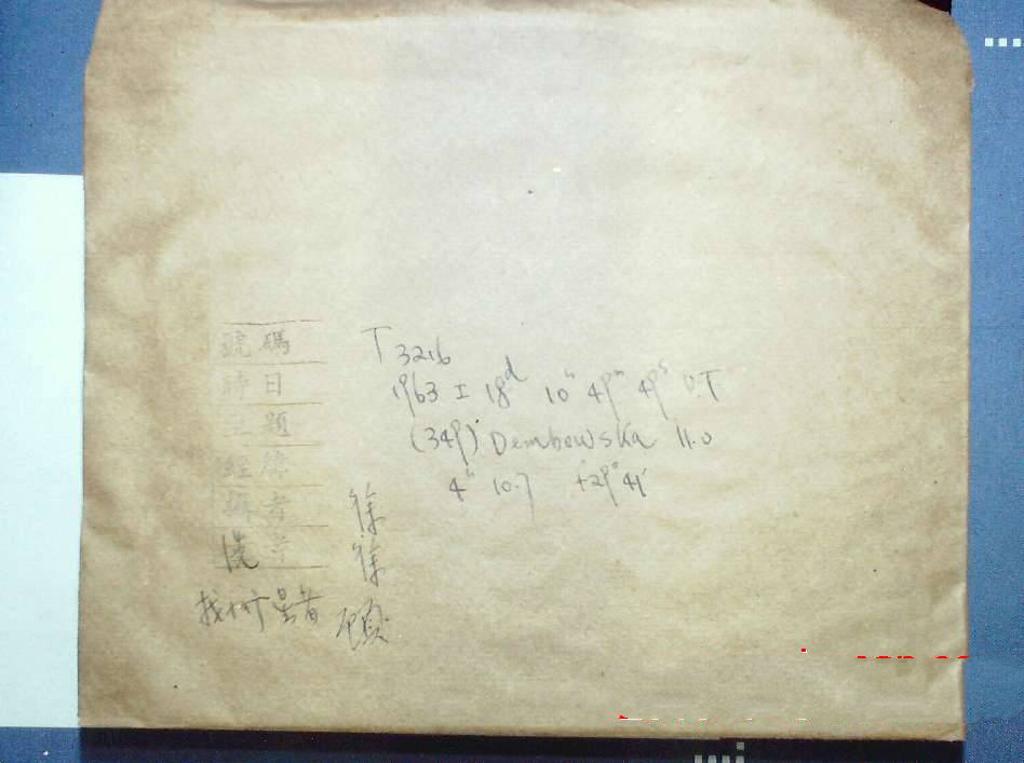 號碼 T 3216
時日 1963 I 18d 10h 49m 49s U.T
主題 (349) Dembowska 11.0
經緯 4h 10.7 +29° 41'
攝者 徐
洗者 徐
找小行星者 顧